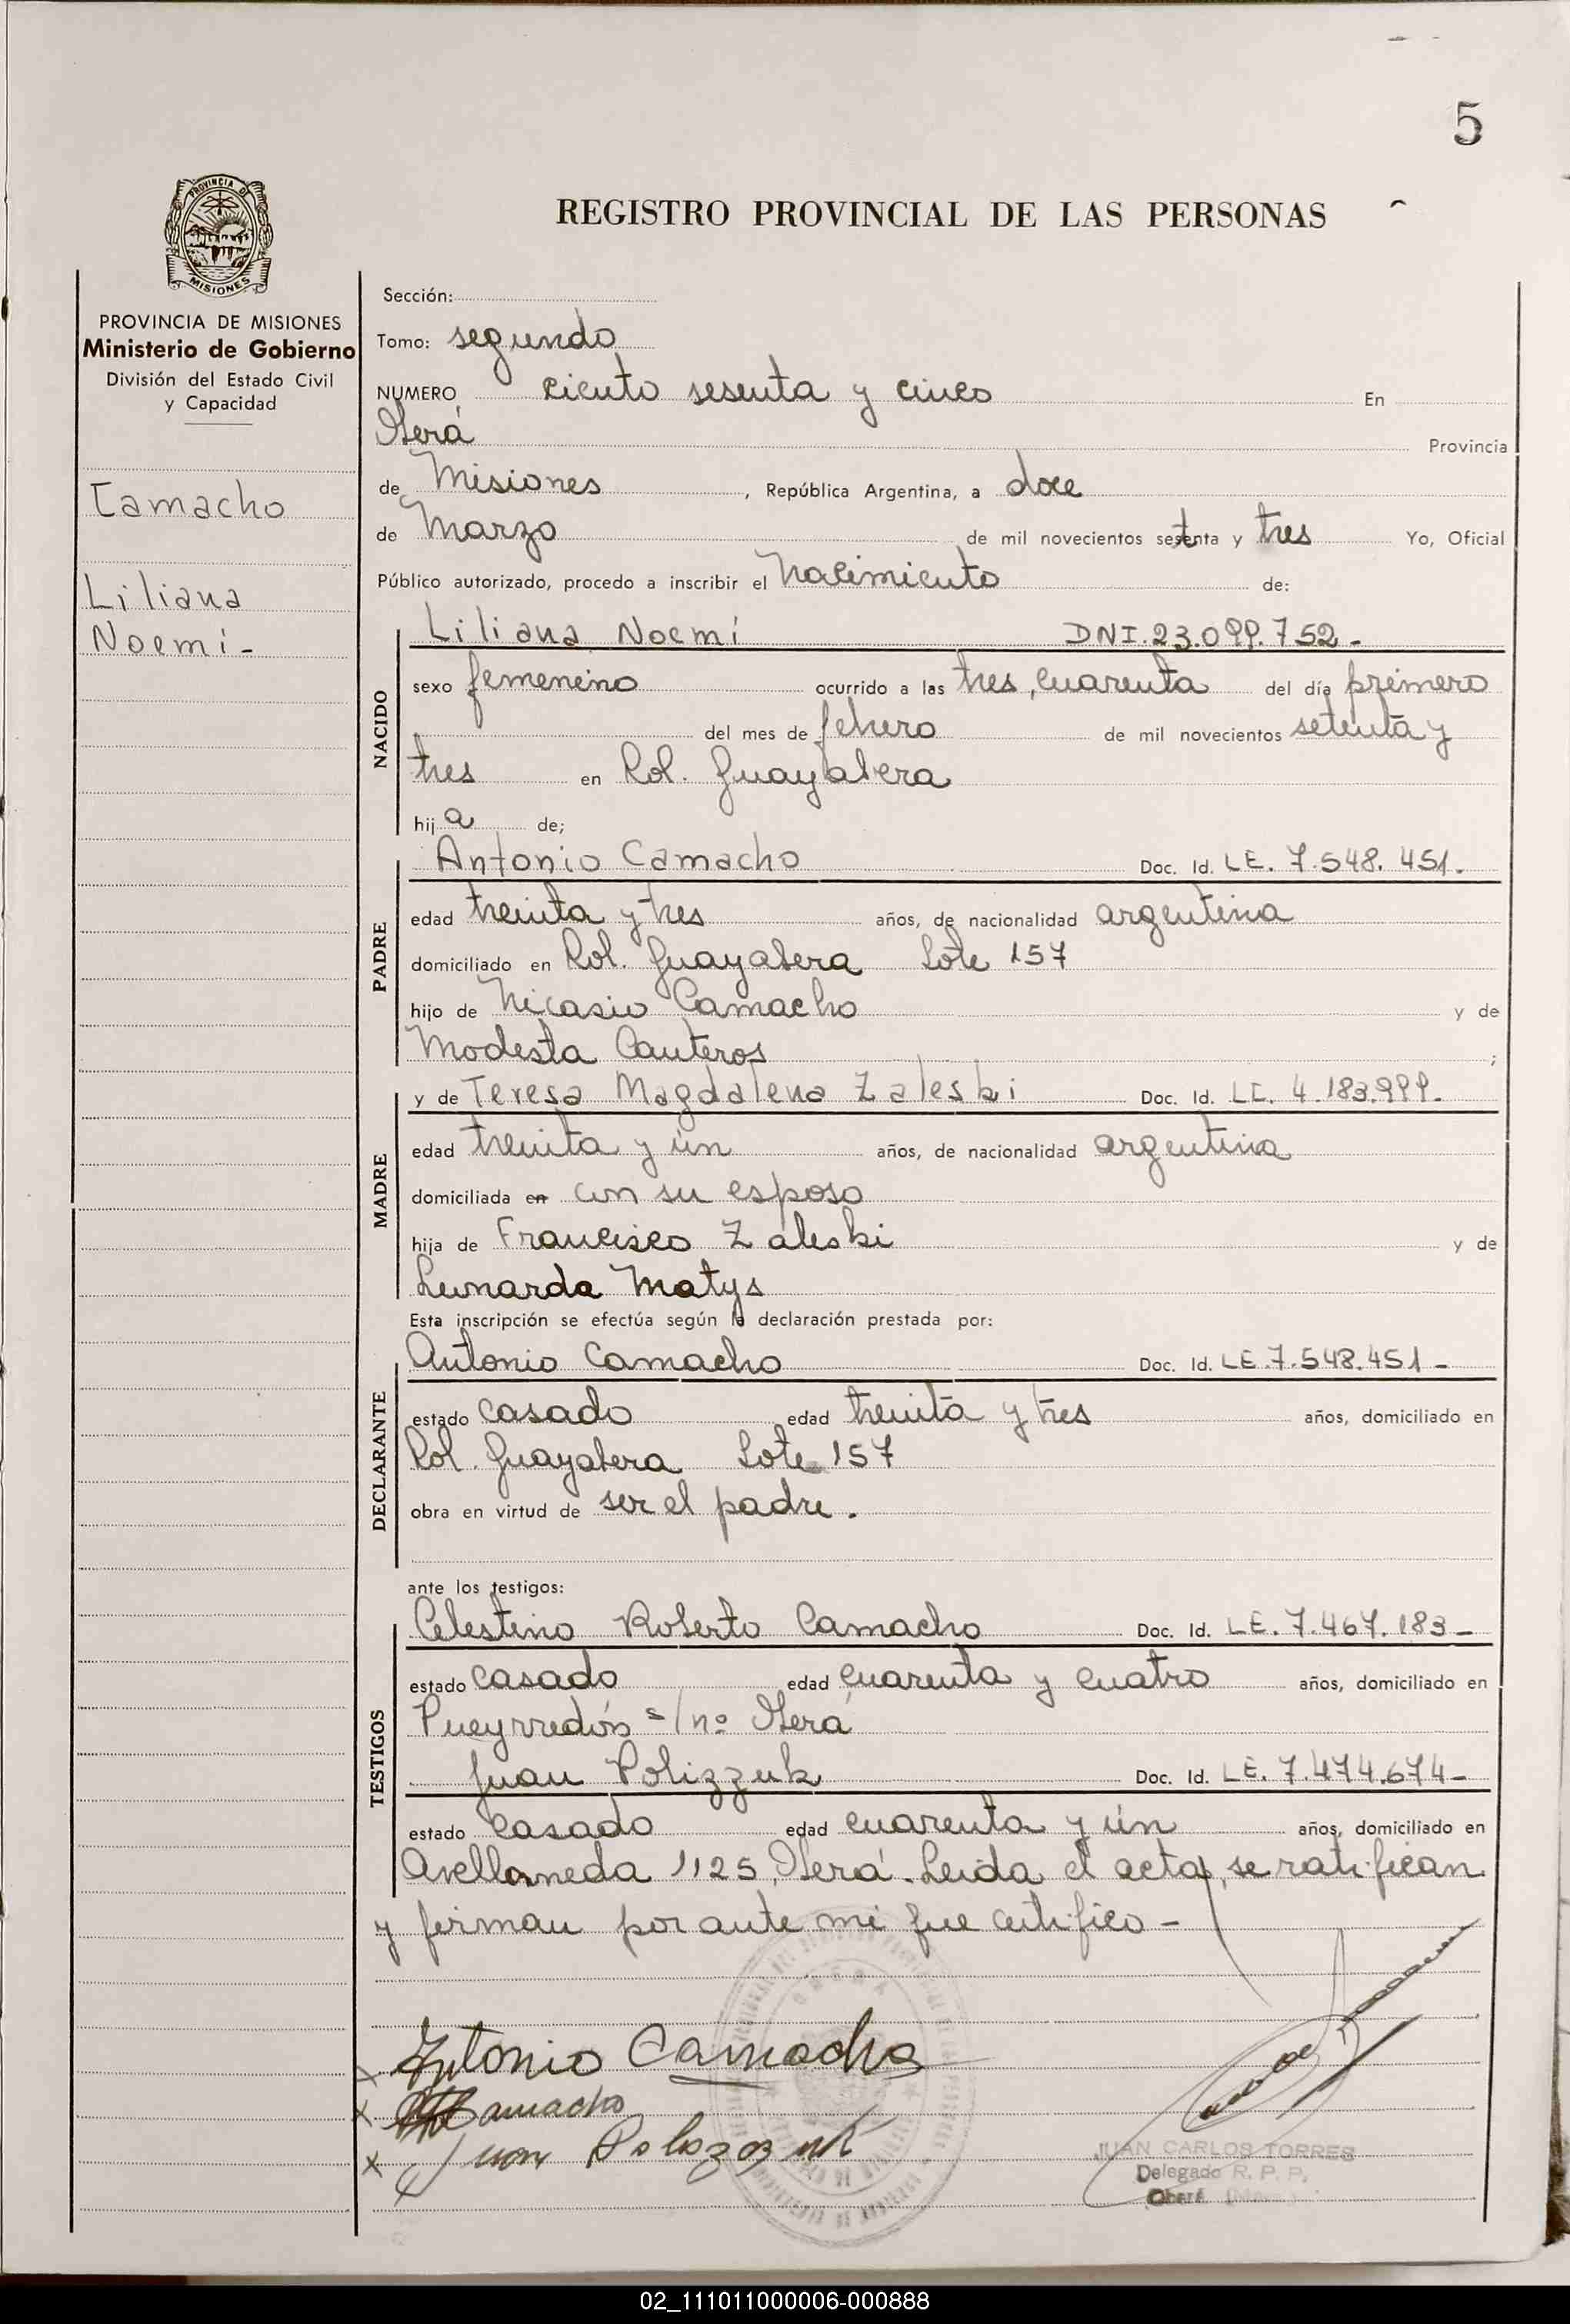 5
REGISTRO PROVINCIAL DE LAS PERSONAS
PROVINCIA DE
MISIONES
PROVINCIA DE MISIONES
Ministerio de Gobierno
División del Estado Civil
y Capacidad
Camacho
Liliana
Noemí-
Sección:
Tomo: segundo
NUMERO ciento sesenta y cinco En
Oberá Provincia
de Misiones, República Argentina, a doce
de Marzo de mil novecientos setenta y tres Yo, Oficial
Público autorizado, procedo a inscribir el Nacimiento de:
NACIDO
Liliana Noemí DNI.23.099.752-
sexo femenino ocurrido a las tres, cuarenta del día primero
del mes de febrero de mil novecientos setenta y
tres en Col. Guayabera
hij a de;
PADRE
Antonio Camacho Doc. Id. LE. 7.548.451.
edad treinta y tres años, de nacionalidad argentina
domiciliado en Col. Guayabera Lote 157
hijo de Nicasio Camacho y de
Modesta Cauteros;
MADRE
y de Teresa Magdalena Zaleski Doc. Id. LC. 4.183.999.
edad treinta y ún años, de nacionalidad argentina
domiciliada en con su esposo
hija de Francisco Zaleski y de
Leonarda Matys
Esta inscripción se efectúa según la declaración prestada por:
DECLARANTE
Antonio Camacho Doc. Id. LE.7.548.451-
estado casado edad treinta y tres años, domiciliado en
Col. Guayabera Lote 157
obra en virtud de ser el padre.
ante los testigos:
TESTIGOS
Celestino Roberto Camacho Doc. Id. LE. 7.467.183-
estado casado edad cuarenta y cuatro años, domiciliado en
Pueyrredón s/nº Oberá
Juan Polizzuk Doc. Id. LE. 7.474.674-
estado casado edad cuarenta y ún años, domiciliado en
Avellaneda 1125, Oberá. Leida el acta, se ratifican
y firman por ante mí que certifico-
x Antonio Camacho
x Camacho
x Juan
JUAN CARLOS TORRES
Delegado R. P. P.
Oberá
02_111011000006-000888